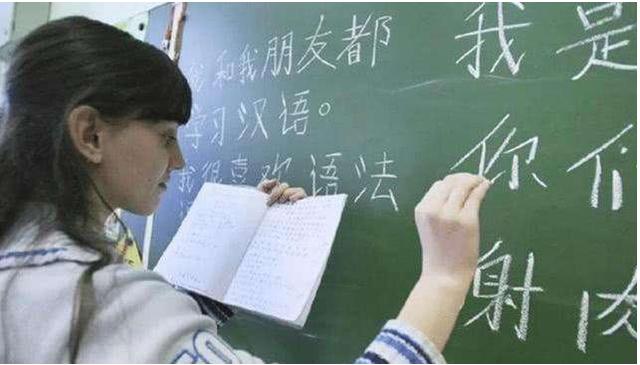 我和我朋友都
学习汉语。
我很喜欢语法
我是
你们
射